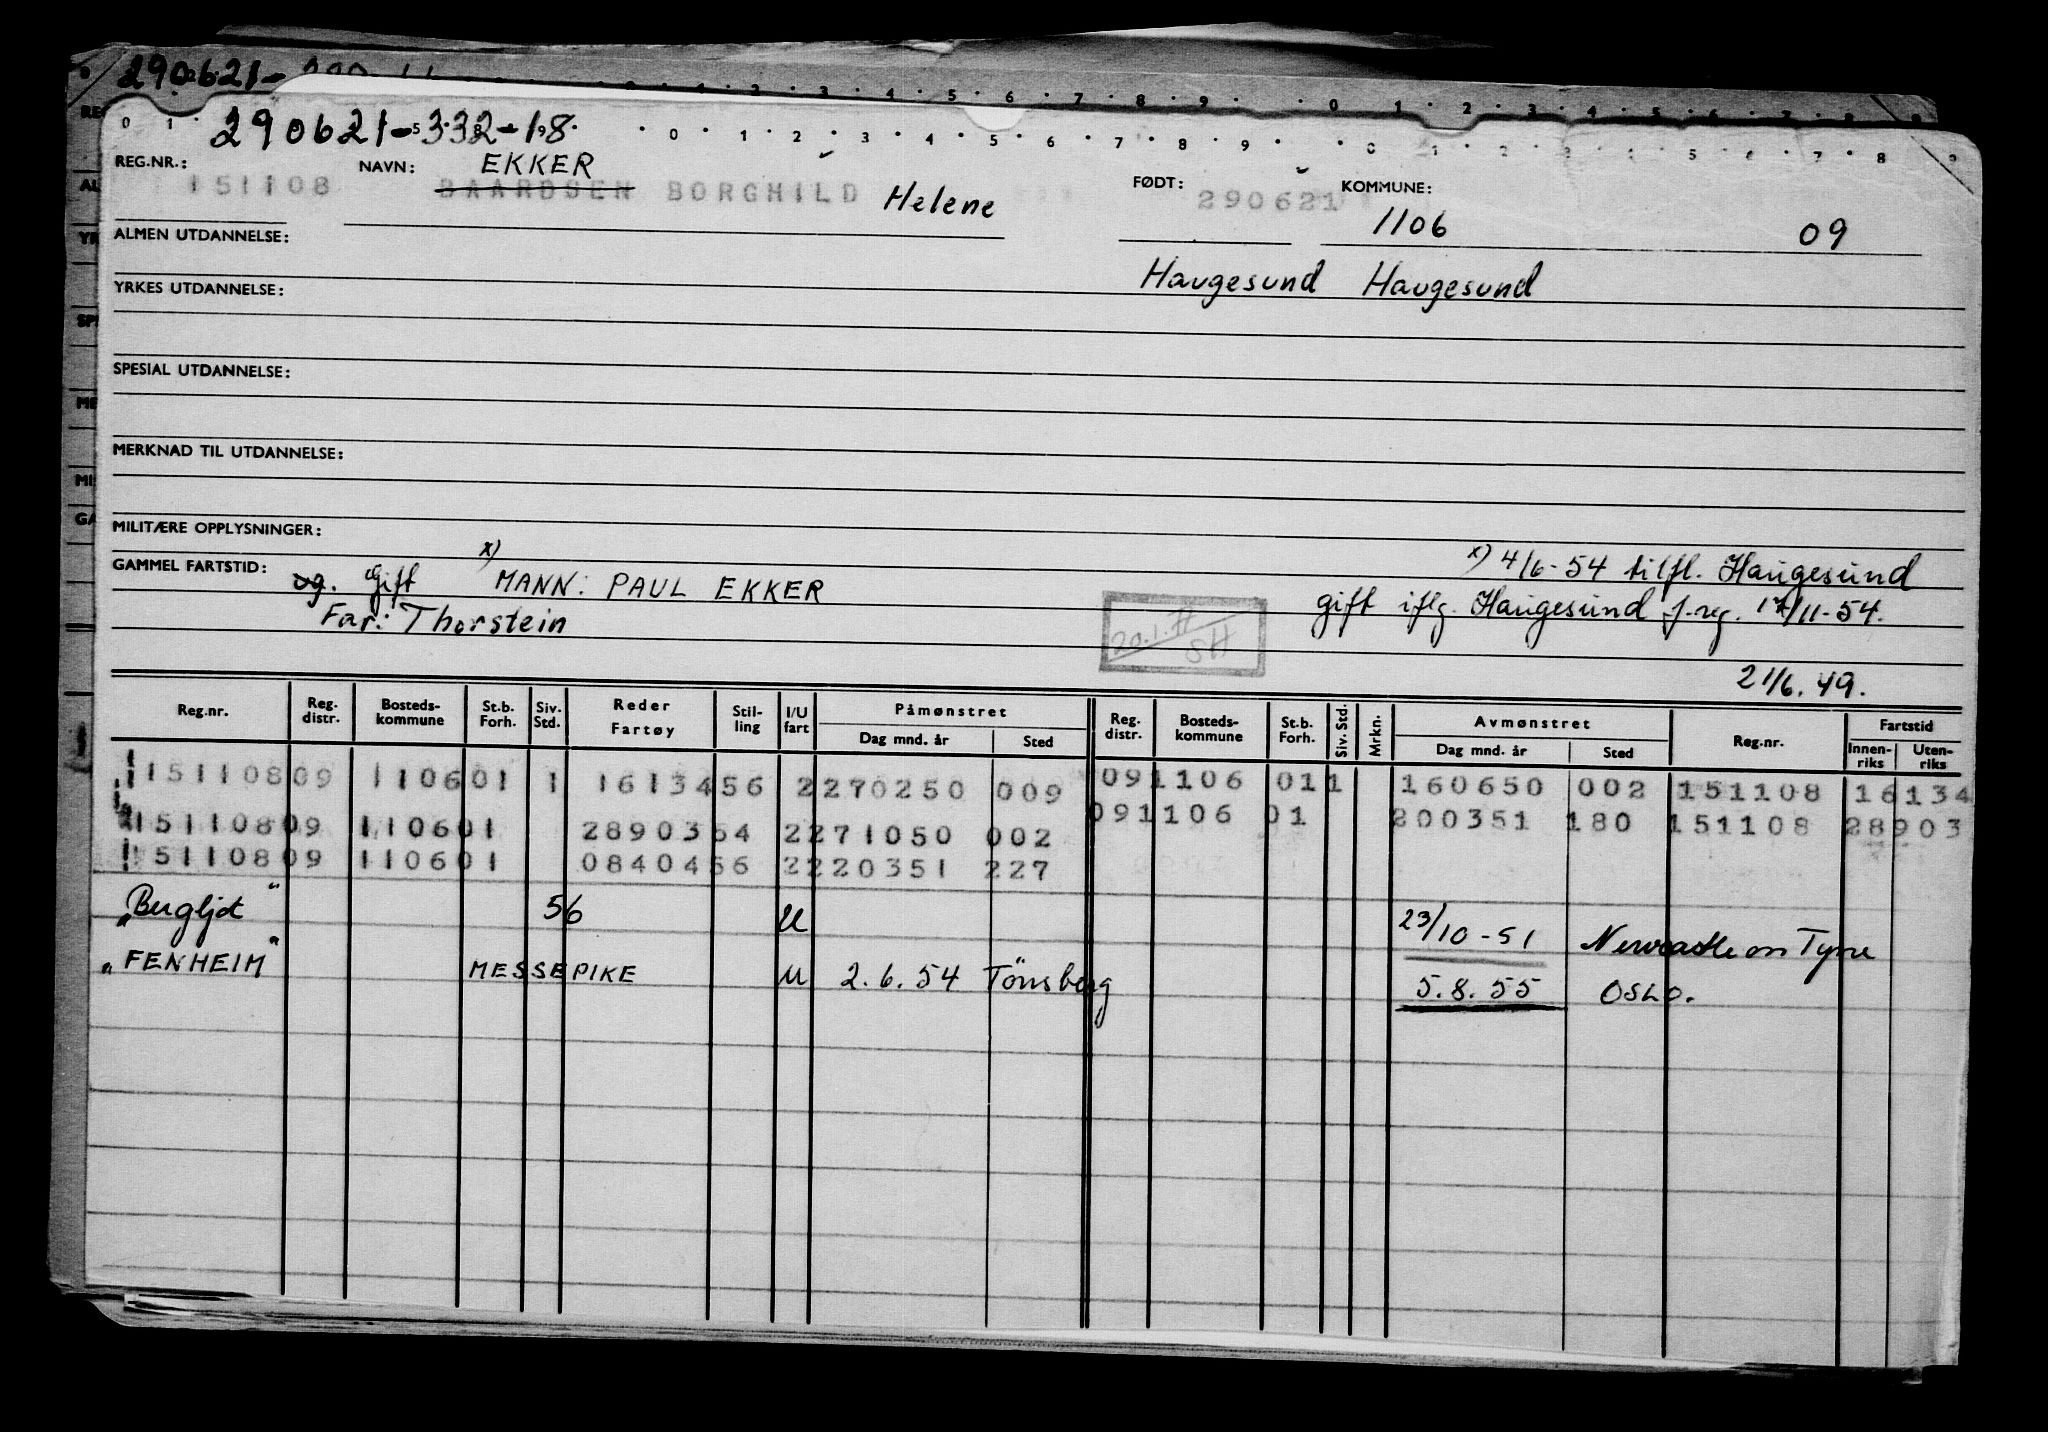 290621-
0 1 2 3 4 5 6 7 8 9 0 1 2 3 4 5 6 7 8 9
290621-332-18
0 1 2 3 4 5 6 7 8 9 0 1 2 3 4 5 6 7 8 9
REG.NR.: 151108 NAVN: EKKER
BAARDSEN BORGHILD Helene FØDT: 290621 KOMMUNE: 1106 09
ALMEN UTDANNELSE:
Haugesund Haugesund
YRKES UTDANNELSE:
SPESIAL UTDANNELSE:
MERKNAD TIL UTDANNELSE:
MILITÆRE OPPLYSNINGER:
GAMMEL FARTSTID: ug. Gift x) MANN: PAUL EKKER x) 4/6-54 tilfl. Haugesund
Far: Thorstein gift iflg. Haugesund f.reg. 17/11-54.
20.1.
SH
21/6.49.
Reg.nr. Reg. distr. Bosteds-kommune St.b. Forh. Siv. Std. Reder Fartøy Stil-ling I/U fart Påmønstret Dag mnd. år Sted Reg. distr. Bosteds-kommune St.b. Forh. Siv. Std. Mrkn. Avmønstret Dag mnd. år Sted Reg.nr. Fartstid Innen-riks Uten-riks
151108 09 1106 01 1 16134 56 2 270250 009 09 1106 01 1 160650 002 151108 16134
151108 09 1106 01 28903 54 2 271050 002 09 1106 01 200351 180 151108 28903
151108 09 1106 01 08404 56 2 220351 227
"Bergljot" 56 U 23/10-51 Newcastle on Tyne
"FENHEIM" MESSEPIKE U 2.6.54 Tönsberg 5.8.55 OSLO.